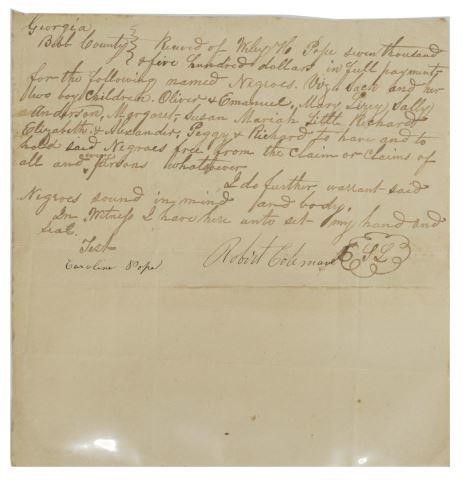 Georgia
Bibb County } Receivd of Wiley H Pope seven thousand
& five hundred dollars in full payment
for the following named Negroes. Viz and her
two boy children. Oliver & Emanuel, Mary Lizzy, Sally
Anderson, Margaret, Susan Mariah Little Richard
Elizabeth & Alexander, Peggy & Richard to have and to
hold said Negroes free from the claim or claims of
all and every persons whatsoever
I do further, warrant said
Negroes sound in mind and body.
In Witness I have here unto set my hand and
seal.
Test
Caroline Pope
Robert Coleman LS